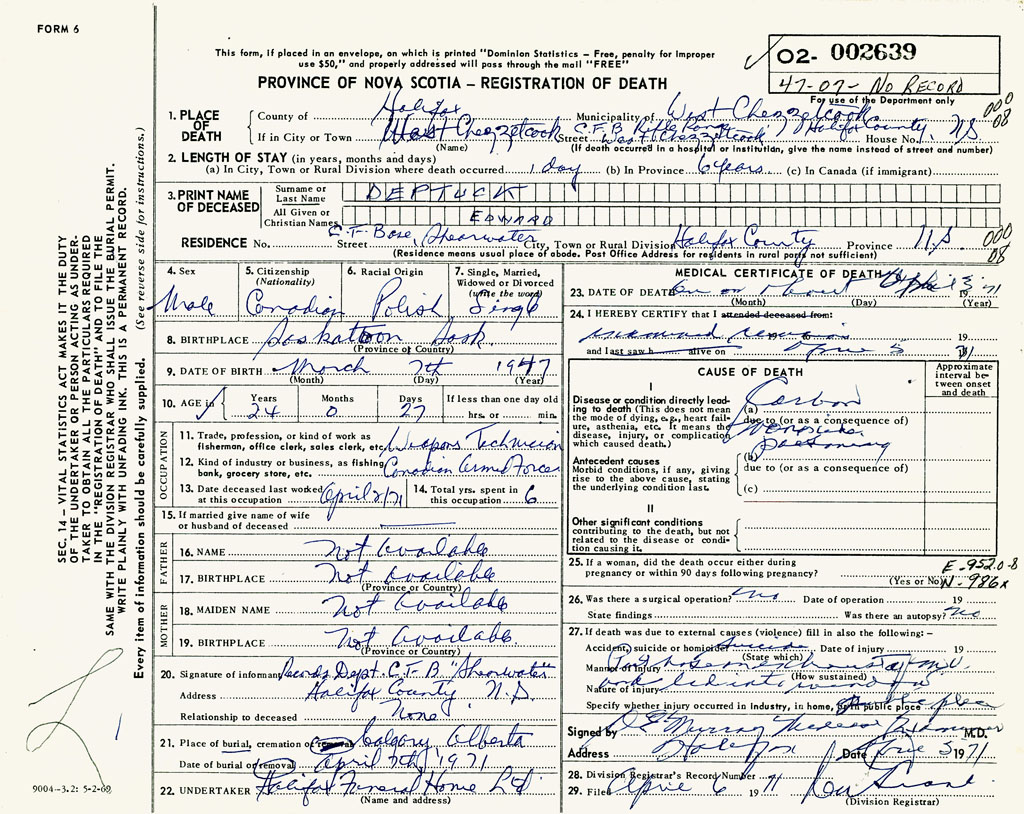 FORM 6
This form, if placed in an envelope, on which is printed "Dominion Statistics – Free, penalty for improper
use $50," and properly addressed will pass through the mail "FREE"
02- 002639
47-07- No RECORD
For use of the Department only
PROVINCE OF NOVA SCOTIA – REGISTRATION OF DEATH
000
08
1. PLACE OF DEATH
County of Halifax Municipality of West Chezzetcook
If in City or Town West Chezzetcook Street C.F.B. West Chezzetcook House No. Halifax County, N.S
(Name) (If death occurred in a hospital or institution, give the name instead of street and number)
2. LENGTH OF STAY (in years, months and days)
(a) In City, Town or Rural Division where death occurred 1 day (b) In Province 6 years (c) In Canada (if immigrant)
3. PRINT NAME OF DECEASED
Surname or Last Name DEPTUCK
All Given or Christian Names EDWARD
RESIDENCE No. Street C.F. Base, Shearwater City, Town or Rural Division Halifax County Province N.S. 000
08
(Residence means usual place of abode. Post Office Address for residents in rural parts not sufficient)
4. Sex Male
5. Citizenship (Nationality) Canadian
6. Racial Origin Polish
7. Single, Married, Widowed or Divorced (write the word) Single
8. BIRTHPLACE Saskatoon Sask.
(Province or Country)
9. DATE OF BIRTH March 7th 1947
(Month) (Day) (Year)
10. AGE in Years 24 Months 0 Days 27 If less than one day old hrs. or min.
OCCUPATION
11. Trade, profession, or kind of work as fisherman, office clerk, sales clerk, etc. Weapons Technician
12. Kind of industry or business, as fishing bank, grocery store, etc. Canadian Armed Forces
13. Date deceased last worked at this occupation April 2/71
14. Total yrs. spent in this occupation 6
15. If married give name of wife or husband of deceased
FATHER
16. NAME Not Available
17. BIRTHPLACE Not Available
(Province or Country)
MOTHER
18. MAIDEN NAME Not Available
19. BIRTHPLACE Not Available
(Province or Country)
20. Signature of informant Records Dept. C.F.B "Shearwater"
Address Halifax County N.S
Relationship to deceased None
21. Place of burial, cremation or removal Calgary Alberta
Date of burial or removal April 7th 1971
22. UNDERTAKER Halifax Funeral Home Ltd.
(Name and address)
MEDICAL CERTIFICATE OF DEATH
23. DATE OF DEATH On or about April 3 1971
(Month) (Day) (Year)
24. I HEREBY CERTIFY that I attended deceased from:
19
and last saw h alive on April 5 1971
CAUSE OF DEATH
Approximate interval between onset and death
I
Disease or condition directly leading to death (This does not mean the mode of dying, e.g., heart failure, asthenia, etc. It means the disease, injury, or complication which caused death.)
(a) Carbon
due to (or as a consequence of)
Monoxide
(b) Poisoning
Antecedent causes
Morbid conditions, if any, giving rise to the above cause, stating the underlying condition last.
due to (or as a consequence of)
(c)
II
Other significant conditions contributing to the death, but not related to the disease or condition causing it.
25. If a woman, did the death occur either during pregnancy or within 90 days following pregnancy?
(Yes or No)
E-952.0-8
N-986x
26. Was there a surgical operation? No Date of operation 19
State findings Was there an autopsy? No
27. If death was due to external causes (violence) fill in also the following: –
Accident, suicide or homicide Suicide Date of injury 19
(State which)
Manner of injury
(How sustained)
Nature of injury
Specify whether injury occurred in industry, in home, or in public place Public place
Signed by Murray Medical Examiner M.D.
Address Halifax Date April 5 1971
28. Division Registrar's Record Number 71
29. Filed April 6 1971
(Division Registrar)
SEC. 14 – VITAL STATISTICS ACT MAKES IT THE DUTY
OF THE UNDERTAKER OR PERSON ACTING AS UNDER-
TAKER TO OBTAIN ALL THE PARTICULARS REQUIRED
IN THE "REGISTRATION OF DEATH" AND TO FILE THE
SAME WITH THE DIVISION REGISTRAR WHO SHALL ISSUE THE BURIAL PERMIT.
WRITE PLAINLY WITH UNFADING INK. THIS IS A PERMANENT RECORD.
Every item of information should be carefully supplied. (See reverse side for instructions.)
9004-3.2: 5-2-69